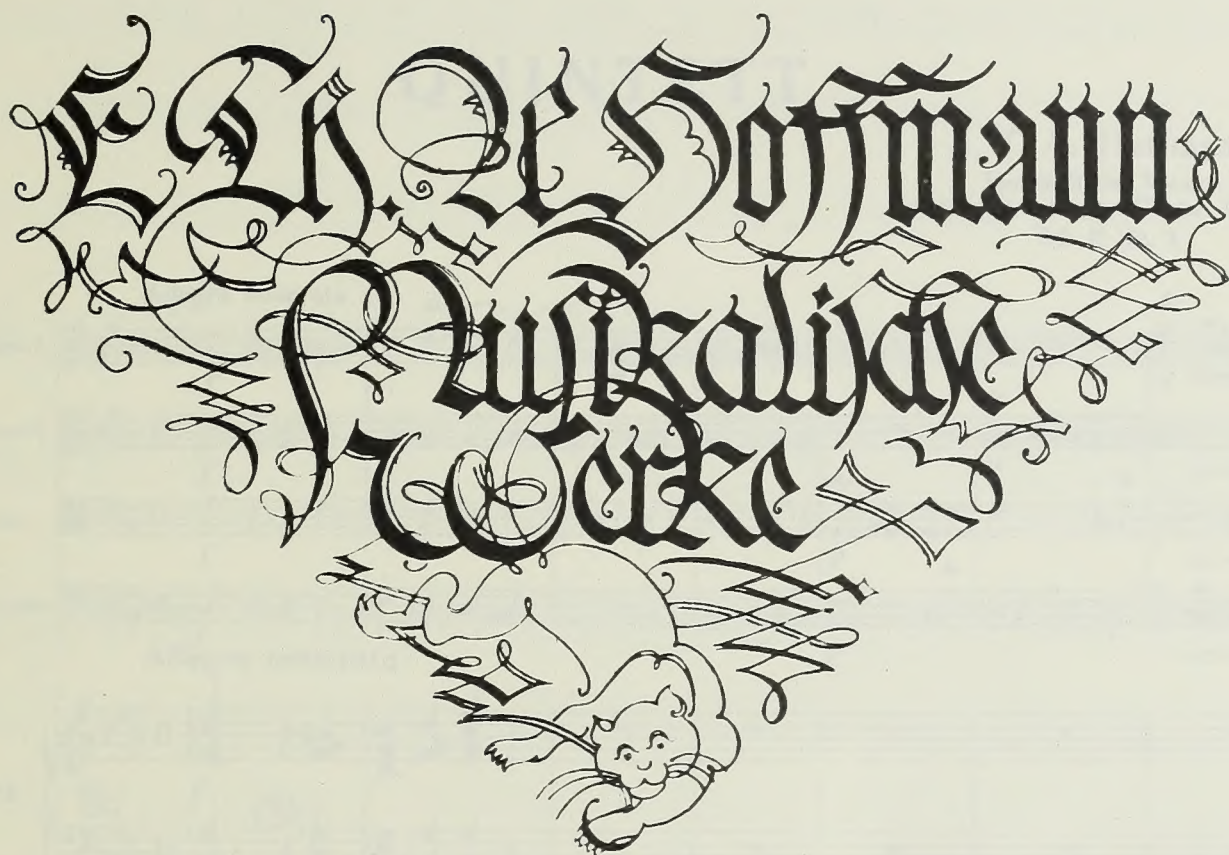 E. Th. A Hoffmann
Musikalische
Werke